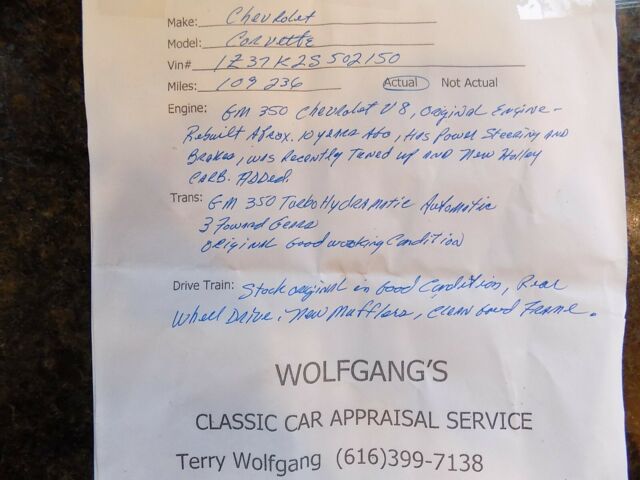 Make: Chevrolet
Model: Corvette
Vin# 1Z37K2S502150
Miles: 109236 Actual Not Actual
Engine: GM 350 Chevrolet V8, Original Engine -
Rebuilt Aprox. 10 years Ago, Has Power Steering and
Brakes, was Recently Tuned up and New Holley
CARB. Added.
Trans: GM 350 TurboHydramatic Automatic
3 Forward Gears
Original Good working Condition
Drive Train: Stock original in Good Condition, Rear
Wheel Drive, New Mufflers, Clean Good Frame.
WOLFGANG'S
CLASSIC CAR APPRAISAL SERVICE
Terry Wolfgang (616)399-7138